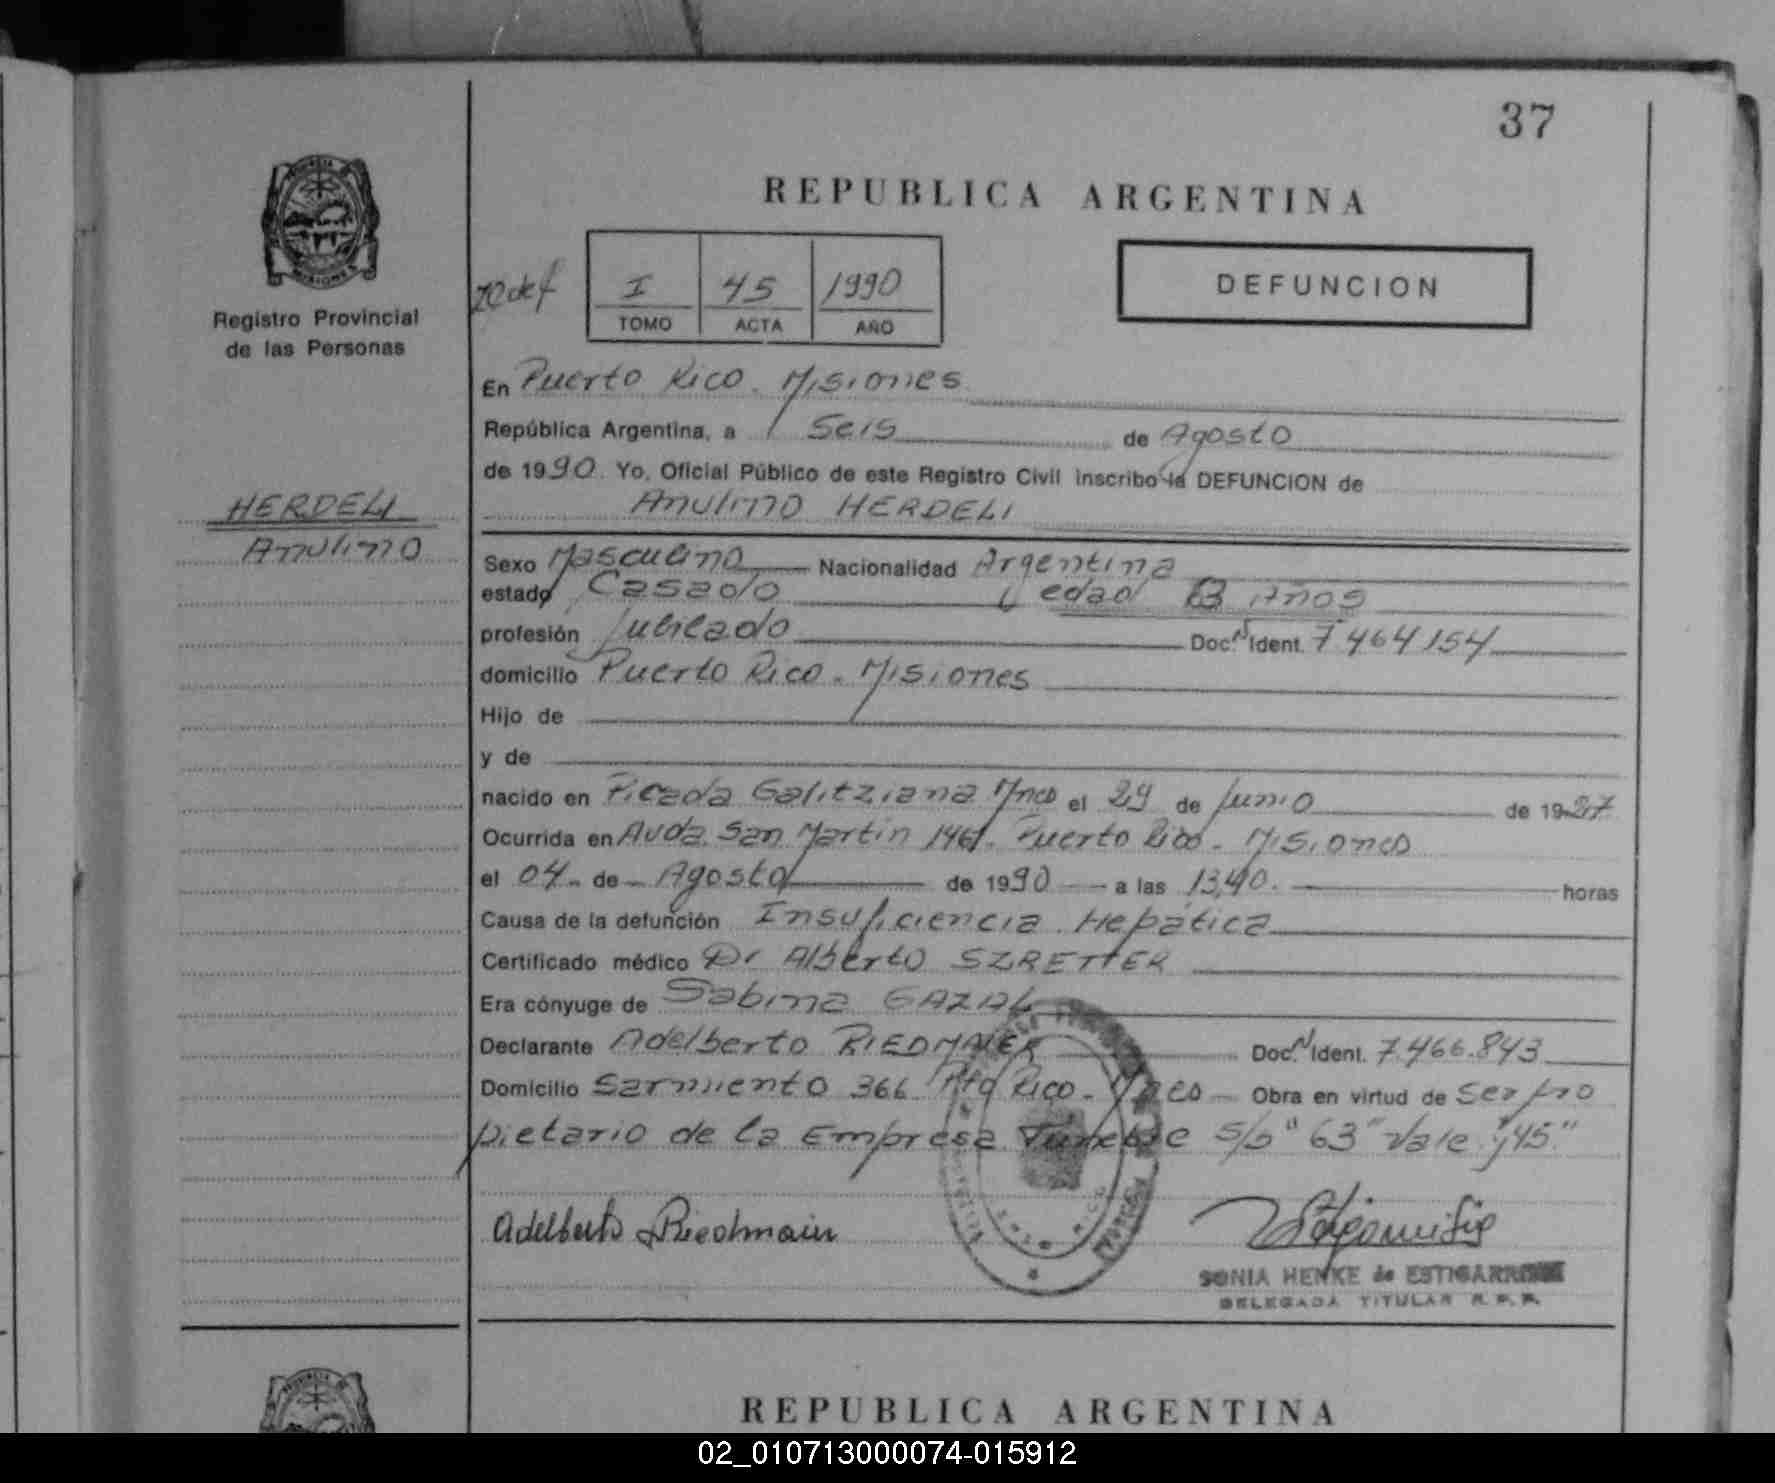 37
REPUBLICA ARGENTINA
I 45 1990
TOMO ACTA AÑO
DEFUNCION
Registro Provincial
de las Personas
En Puerto Rico. Misiones
República Argentina, a Seis de Agosto
de 1990. Yo, Oficial Público de este Registro Civil inscribo la DEFUNCION de
HERDELI
Anulino HERDELI
Anulino
Sexo Masculino Nacionalidad Argentina
estado Casado edad 63 años
profesión Jubilado Doc. N Ident. 7.464.154
domicilio Puerto Rico - Misiones
Hijo de
y de
nacido en Picada Galitziana Mnes el 29 de Junio de 1927
Ocurrida en Avda. San Martín 1461. Puerto Rico - Misiones
el 04 - de - Agosto de 1990 a las 13,40. horas
Causa de la defunción Insuficiencia Hepática
Certificado médico Dr Alberto SZRETTER
Era cónyuge de Sabina GAZAL
Declarante Adelberto RIEDMAIER Doc. N Ident. 7.466.843
Domicilio Sarmiento 366 Pto Rico - Mnes Obra en virtud de Ser pro
pietario de la Empresa Funebre S/b "63" Vale "y 45."
Adelberto Riedmair
SONIA HENKE de ESTIGARRIBIA
DELEGADA TITULAR R. P. P.
REPUBLICA ARGENTINA
02_010713000074-015912